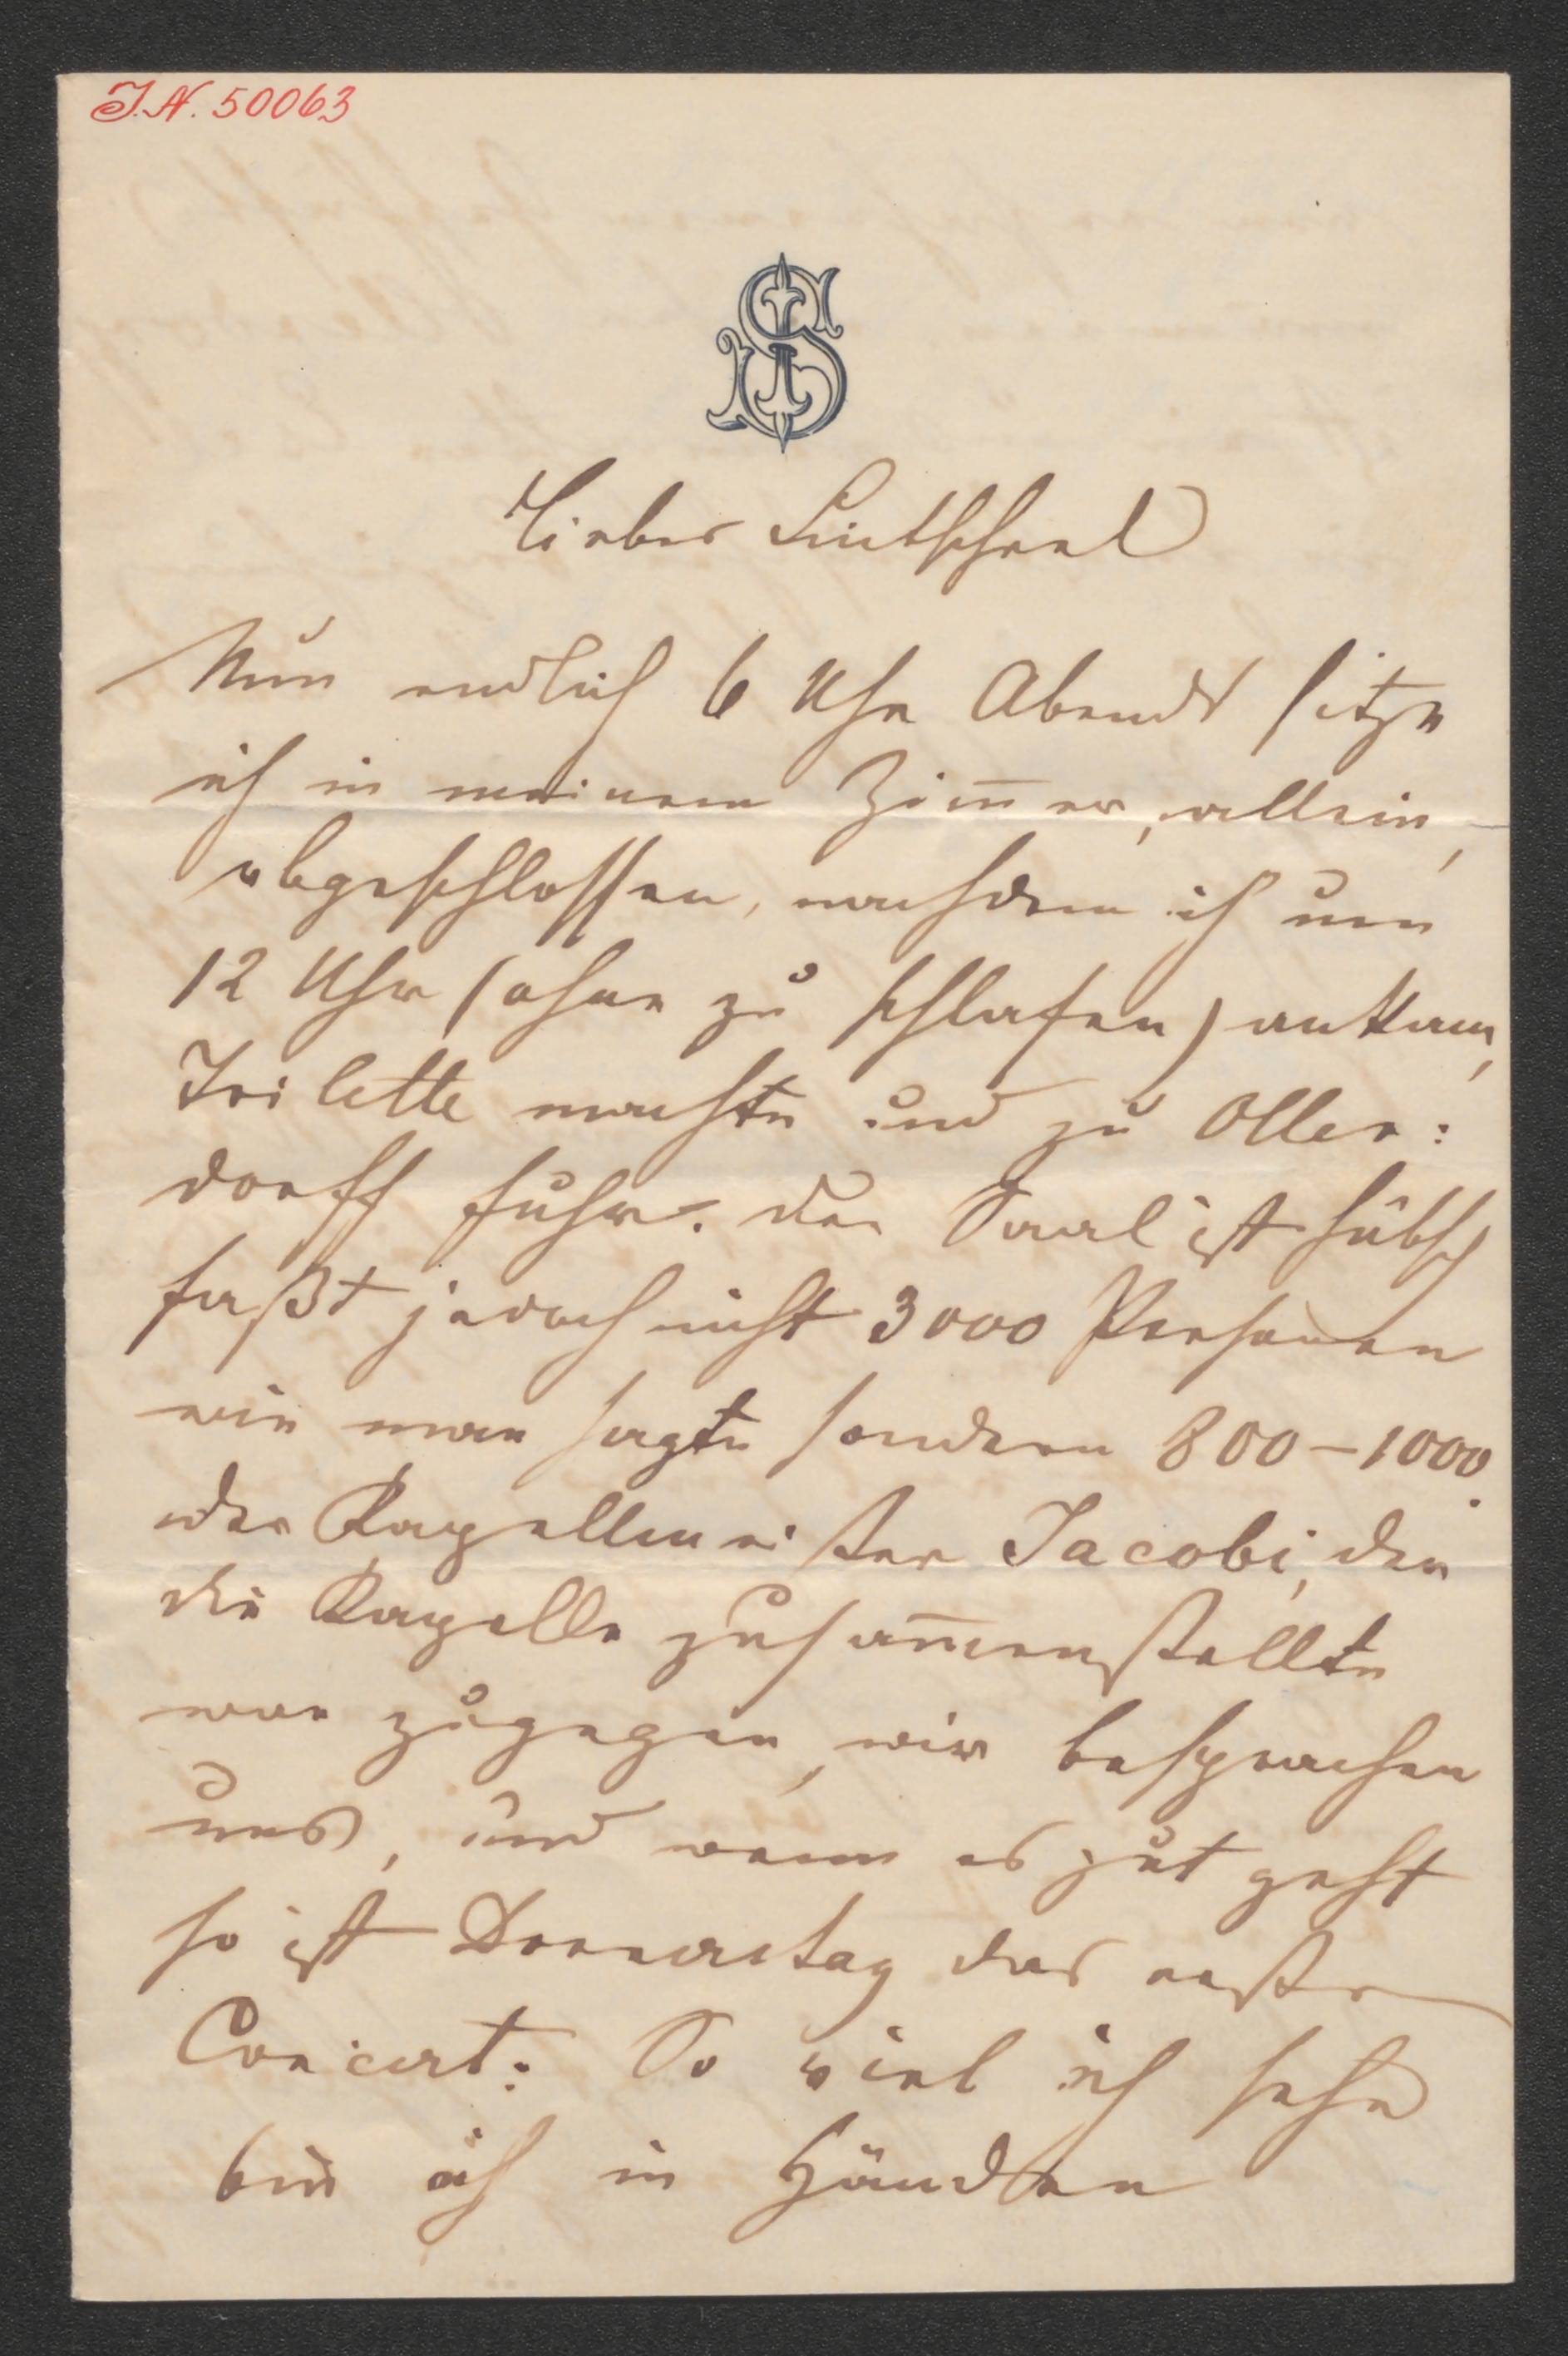 I.N. 50063
JS
Liebes Lintscherl
Nun endlich 6 Uhr Abends sitze
ich in meinem Zim̅er, allein,
abgeschlossen, nachdem ich um
12 Uhr (ohne zu schlafen) ankam,
Toilette machte und zu Ollen:
dorff fuhr. Der Saal ist hübsch
faßt jedoch nicht 3000 Personen
wie man sagte sondern 800–1000.
der Kapellmeister Jacobi, der
die Kapelle zusam̅enstellte
war zugegen, wir besprachen
uns, und wenn es gut geht
so ist Donnerstag das erste
Concert: So viel ich sehe
bin ich in Händen